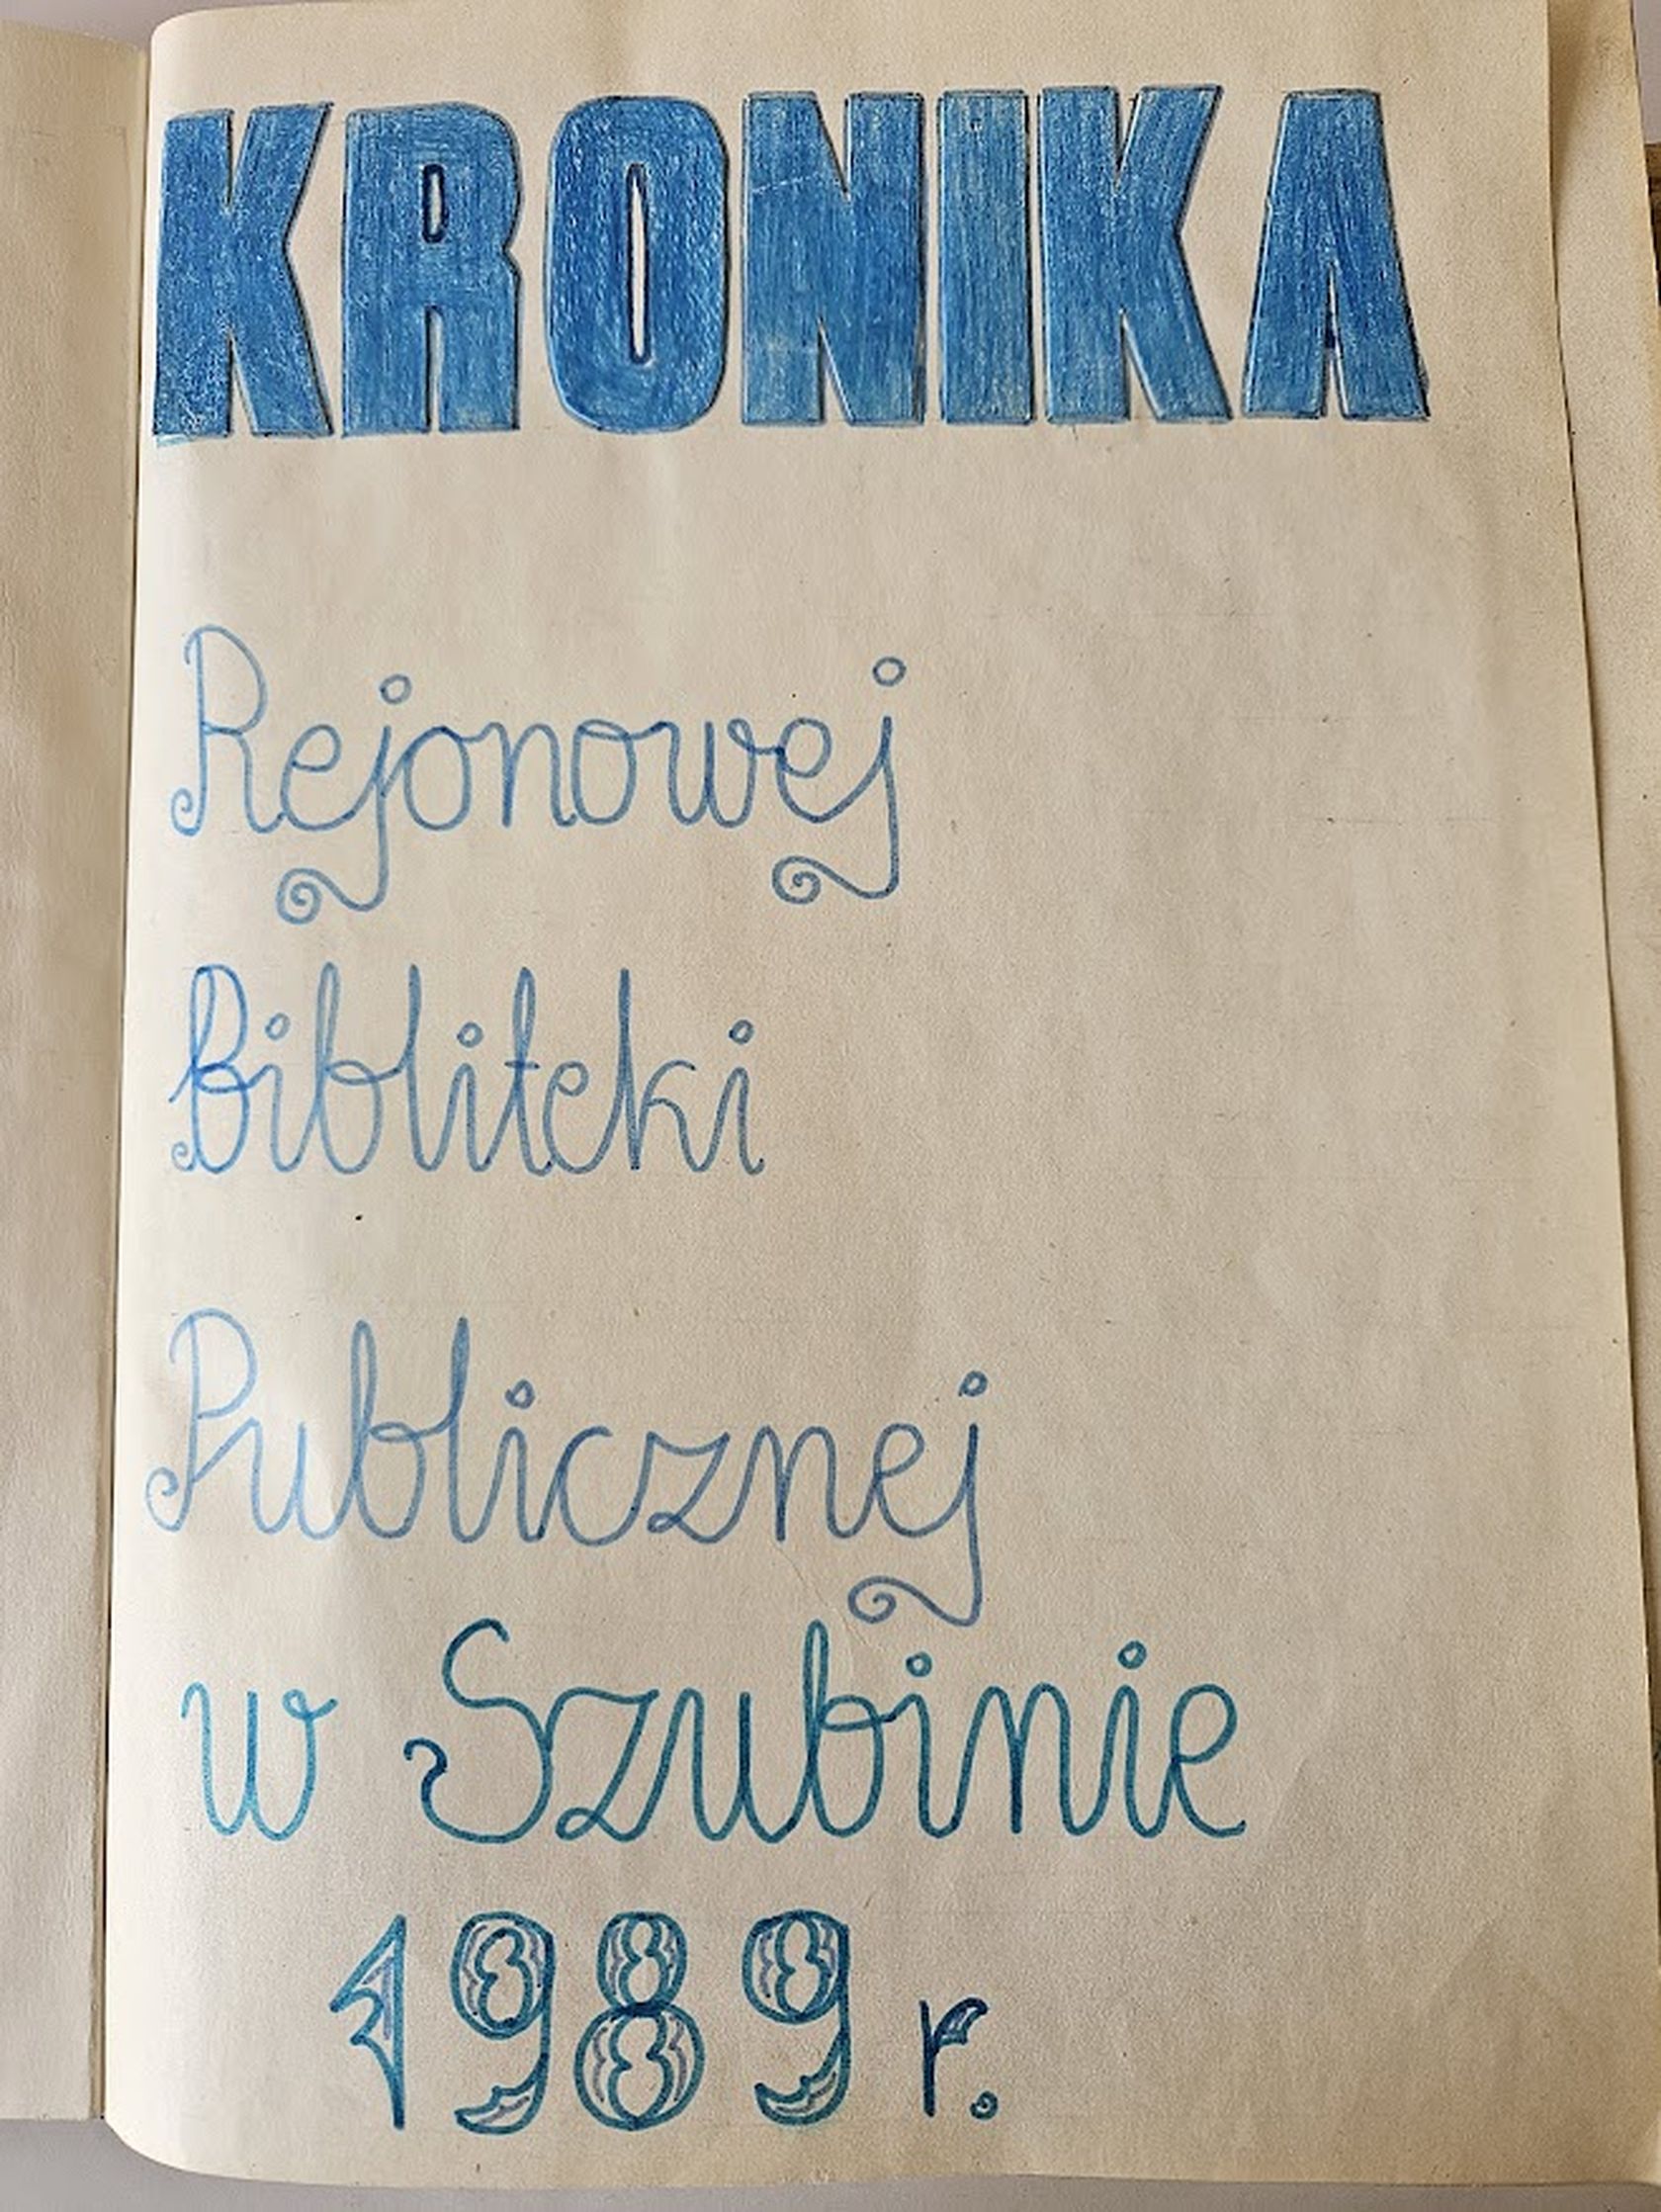 KRONIKA
Rejonowej
Bibliteki
Publicznej
w Szubinie
1989 r.